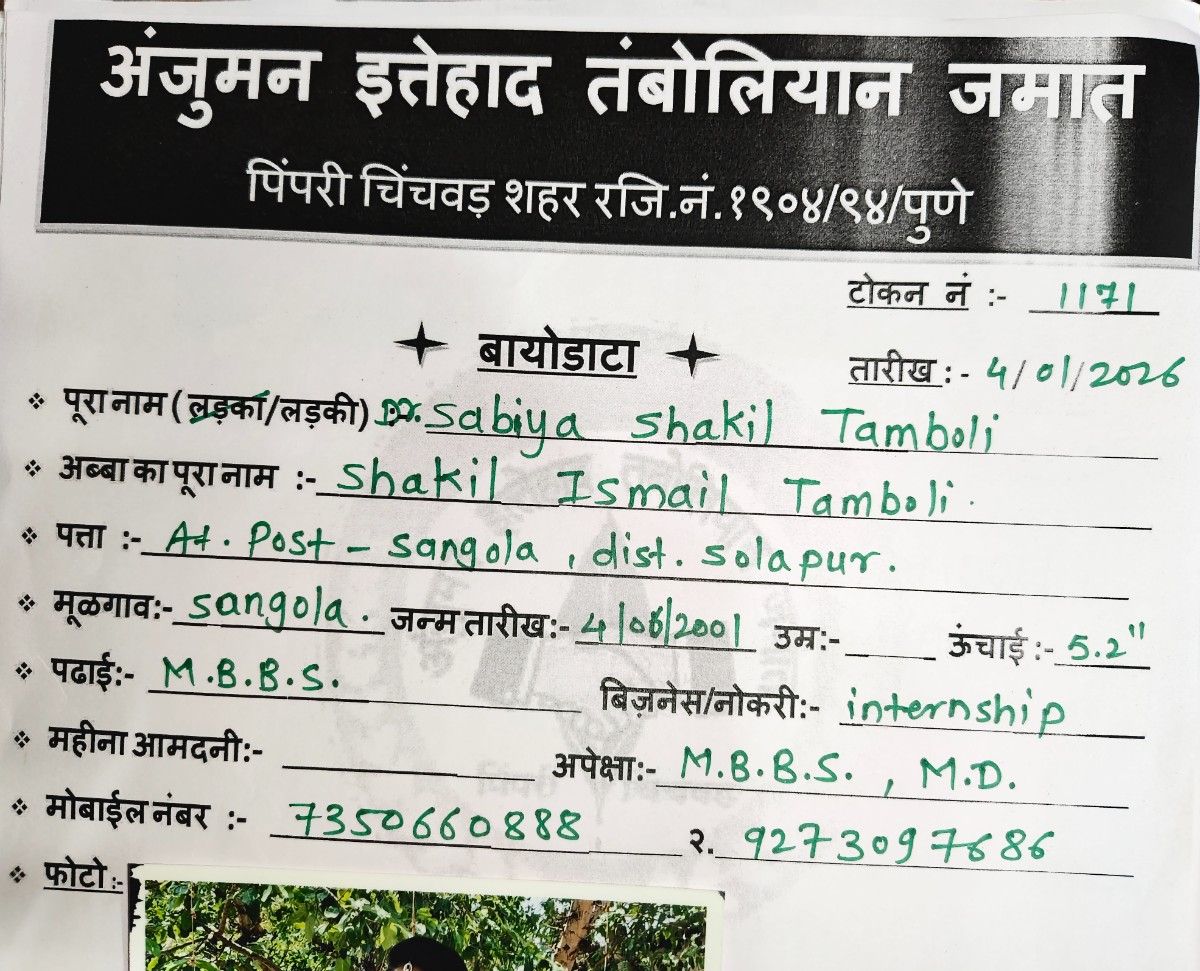 अंजुमन इत्तेहाद तंबोलियान जमात
पिंपरी चिंचवड़ शहर रजि.नं.१९०४/९४/पुणे
टोकन नं :- 1171
बायोडाटा
तारीख :- 4/01/2026
❖ पूरा नाम (लड़का/लड़की) Dr. Sabiya Shakil Tamboli
❖ अब्बा का पूरा नाम :- Shakil Ismail Tamboli.
❖ पत्ता :- At. Post - Sangola, dist. Solapur.
❖ मूळगाव:- Sangola. जन्म तारीख:- 4/06/2001 उम्र:- ऊंचाई :- 5.2"
❖ पढाई:- M.B.B.S. बिज़नेस/नोकरी:- internship
❖ महीना आमदनी:- अपेक्षा:- M.B.B.S., M.D.
❖ मोबाईल नंबर :- 7350660888 २. 9273097686
❖ फोटो :-